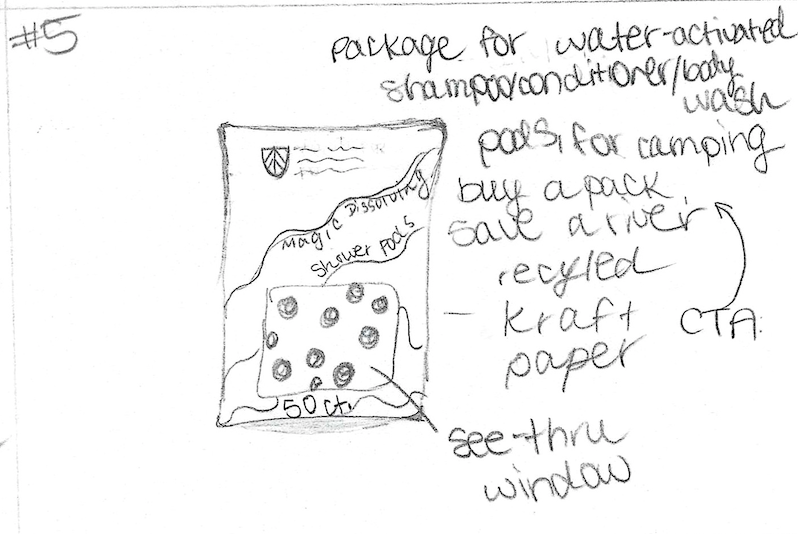 #5
package for water-activated
shampoo/conditioner/body
wash
pods, for camping
buy a pack
save a river
recyled
kraft
paper
CTA:
see-thru
window
Magic Dissolving
Shower Pods
50 ct.